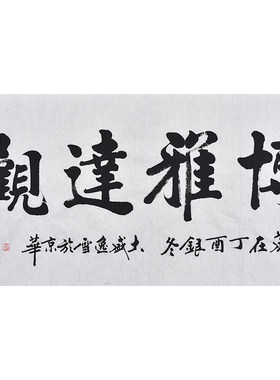 博雅達觀
歲在丁酉銀冬 盛逸雪於京華